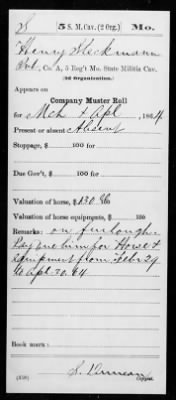 S | 5 S. M. Cav. (2 Org.) | Mo.
Henry Heckmann
Pvt., Co. A, 5 Reg't Mo. State Militia Cav.
(2d Organization.)
Appears on
Company Muster Roll
for Mch & Apl, 1864
Present or absent Absent
Stoppage, $ 100 for
Due Gov't, $ 100 for
Valuation of horse, $ 130.00/100
Valuation of horse equipments, $ 100
Remarks: on furlough
Pay due him for Horse &
Equipment from Febr 29
to Apl 30. 64
Book mark:
(858)
S. Duncan
Copyist.